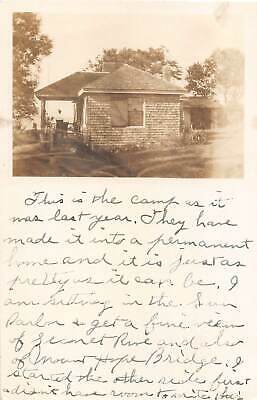 This is the camp as it
was last year. They have
made it into a permanent
home and it is just as
pretty as it can be. I
am sitting in the Sun
Parlor & get a fine view
of Seconet River and also
of Mount Hope Bridge. I
started the other side first
& didn't have room to write this